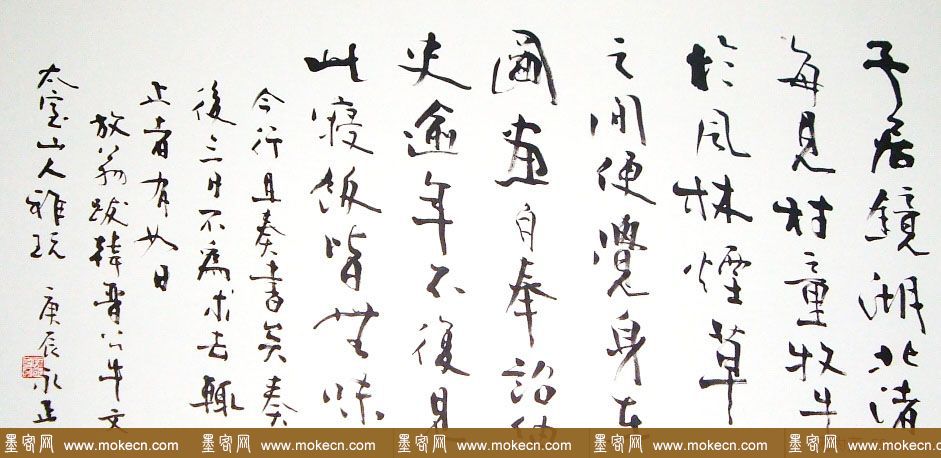 予居鏡湖北渚
每見村童牧牛
於風林煙草
之間便覺身在
圖畫自奉詔紬
史逾年不復見
此寢飯皆無味
今行且奏書矣奏
後三日不為求去輒
止者有如日
放翁跋韓晉公牛文
太室山人雅玩 庚辰永正
墨客网 www.mokecn.com 墨客网 www.mokecn.com 墨客网 www.mokecn.com 墨客网 www.mokecn.com 墨客网 www.mokecn.com